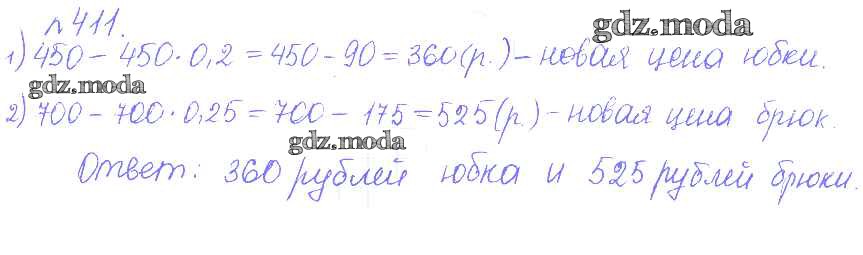 №411.
gdz.moda
1) 450 - 450·0,2 = 450 - 90 = 360 (р.) - новая цена юбки.
gdz.moda
2) 700 - 700·0,25 = 700 - 175 = 525 (р.) - новая цена брюк.
gdz.moda
Ответ: 360 рублей юбка и 525 рублей брюки.